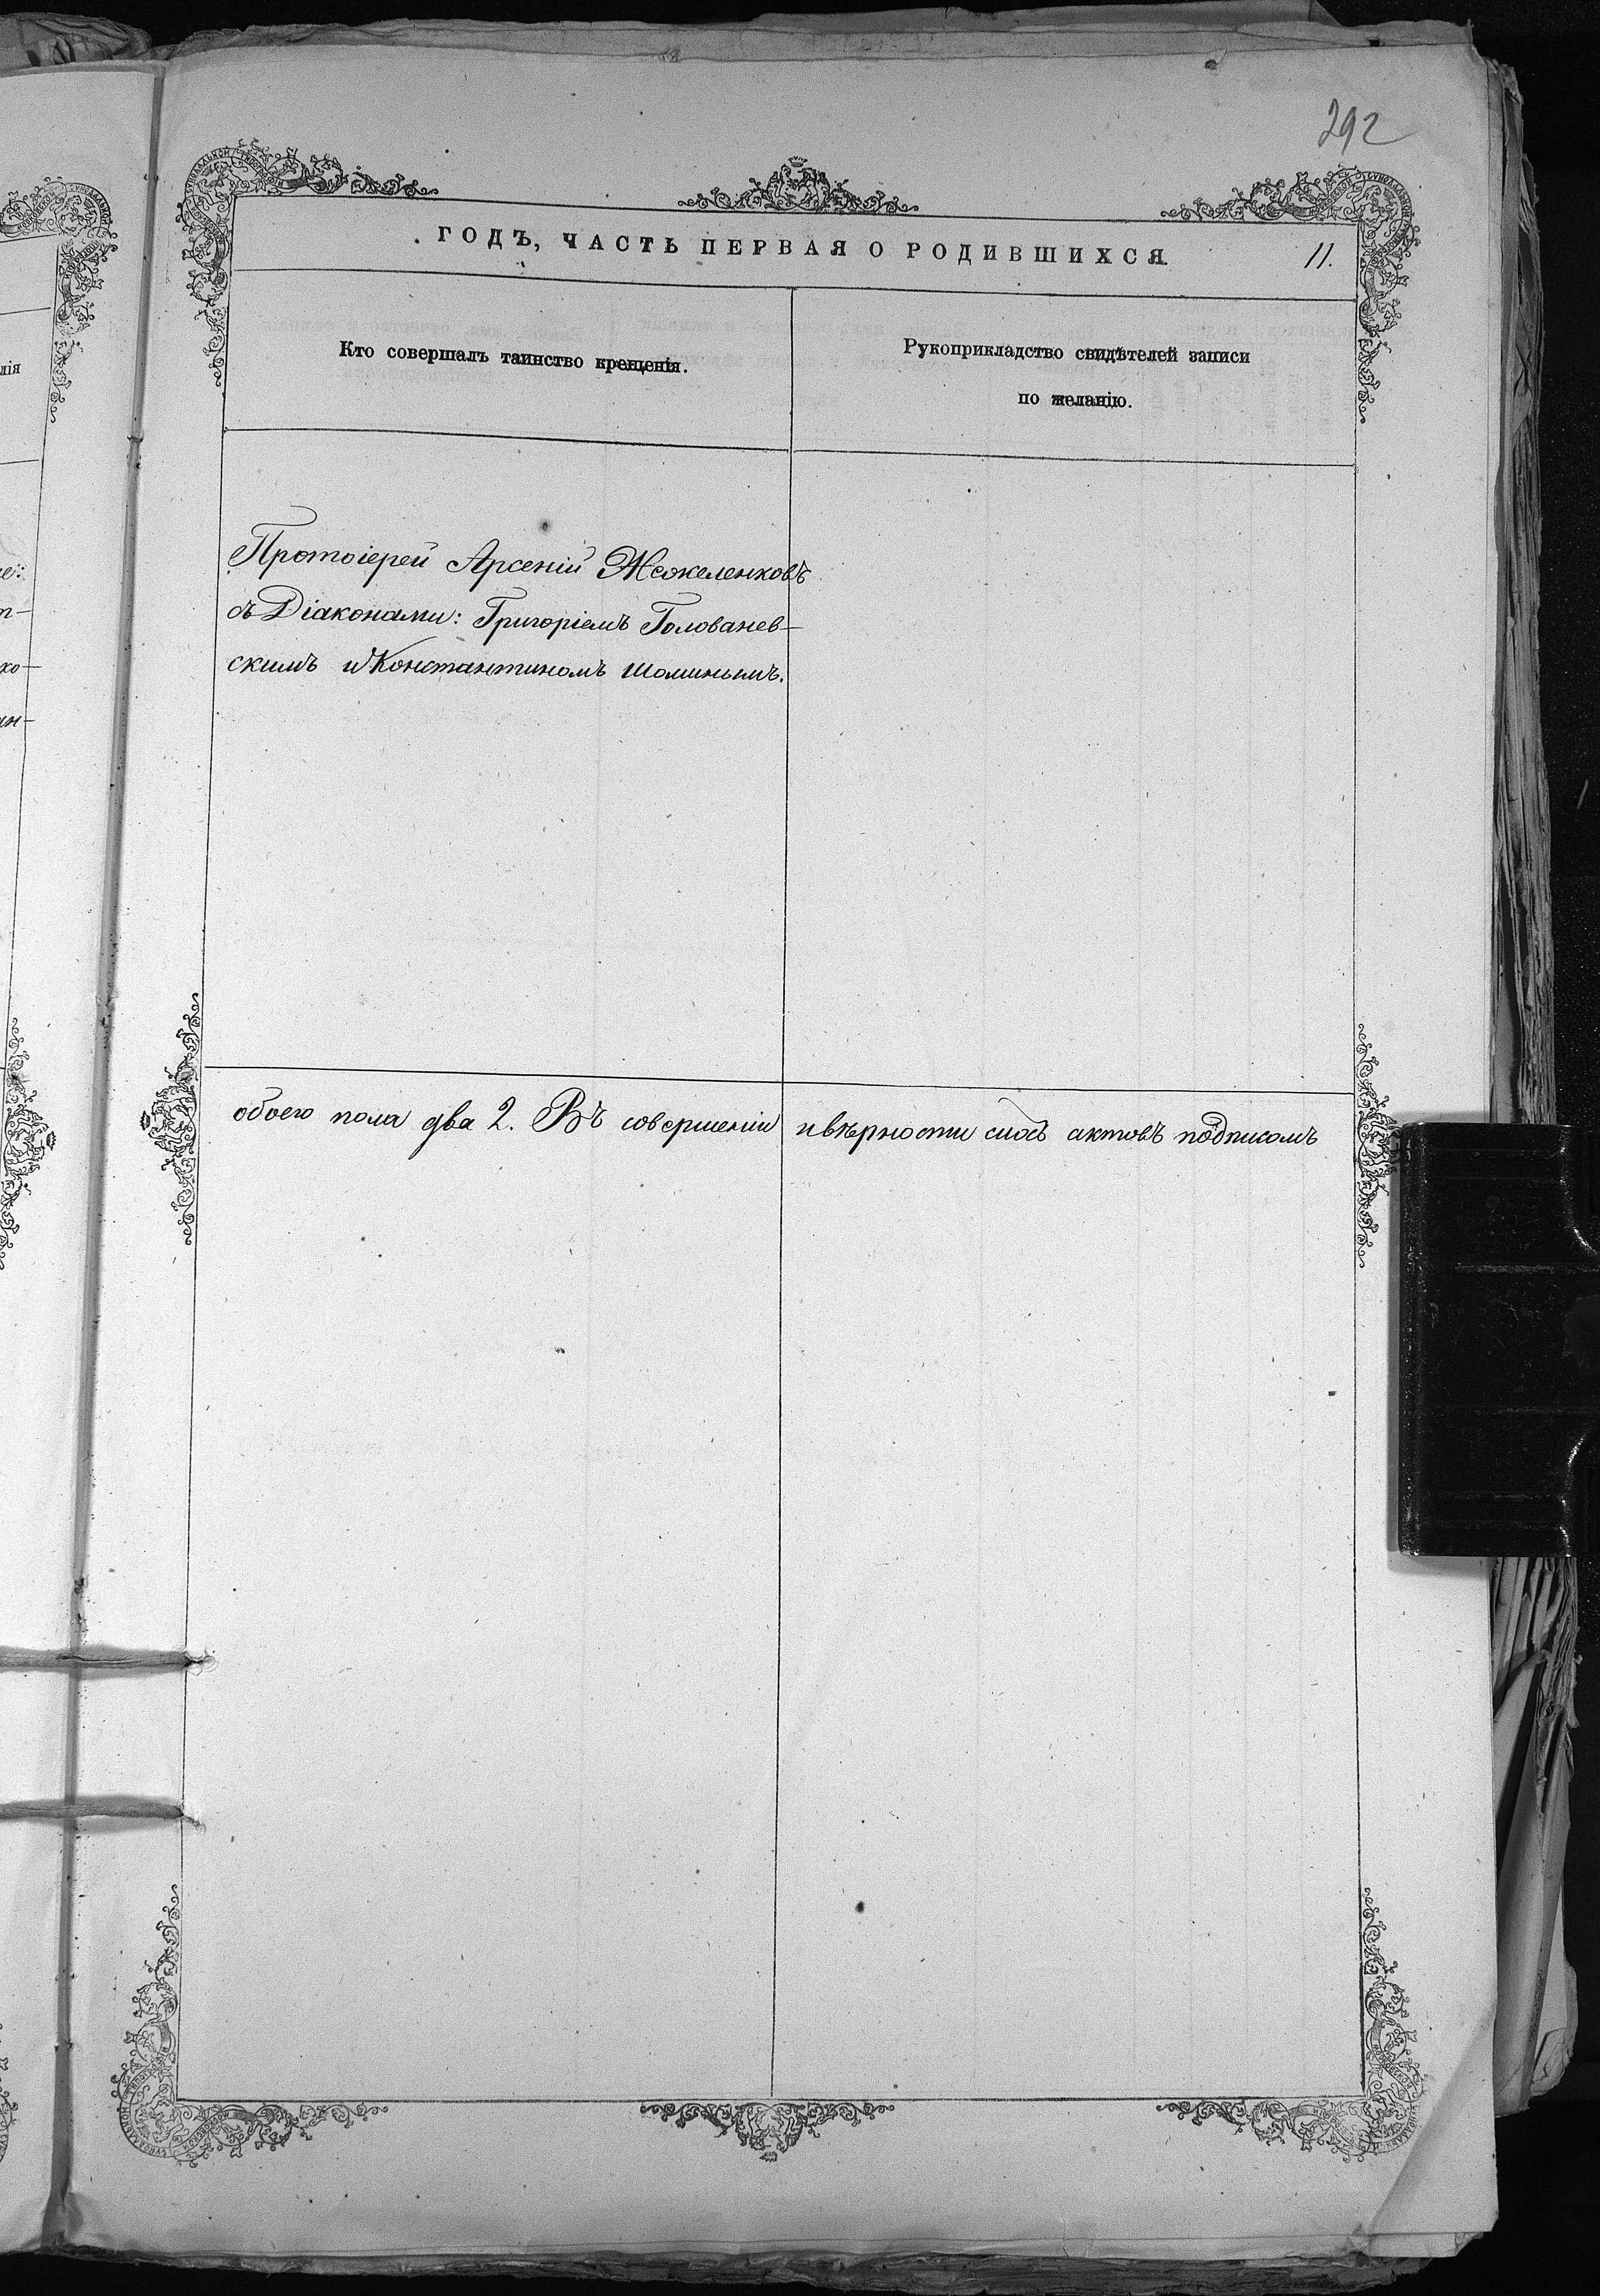 292
ГОДЪ, ЧАСТЬ ПЕРВАЯ О РОДИВШИХСЯ.
11.
Кто совершалъ таинство крещенія.
Рукоприкладство свидѣтелей записи
по желанію.
Протоіерей Арсеній Жежеленковъ
съ Діаконами: Григоріемъ Голованев-
скимъ и Константиномъ Шоминымъ.
обоего пола два 2. Въ совершеніи и вѣрности сихъ актовъ подписомъ